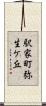 駅家町弥
生ケ丘